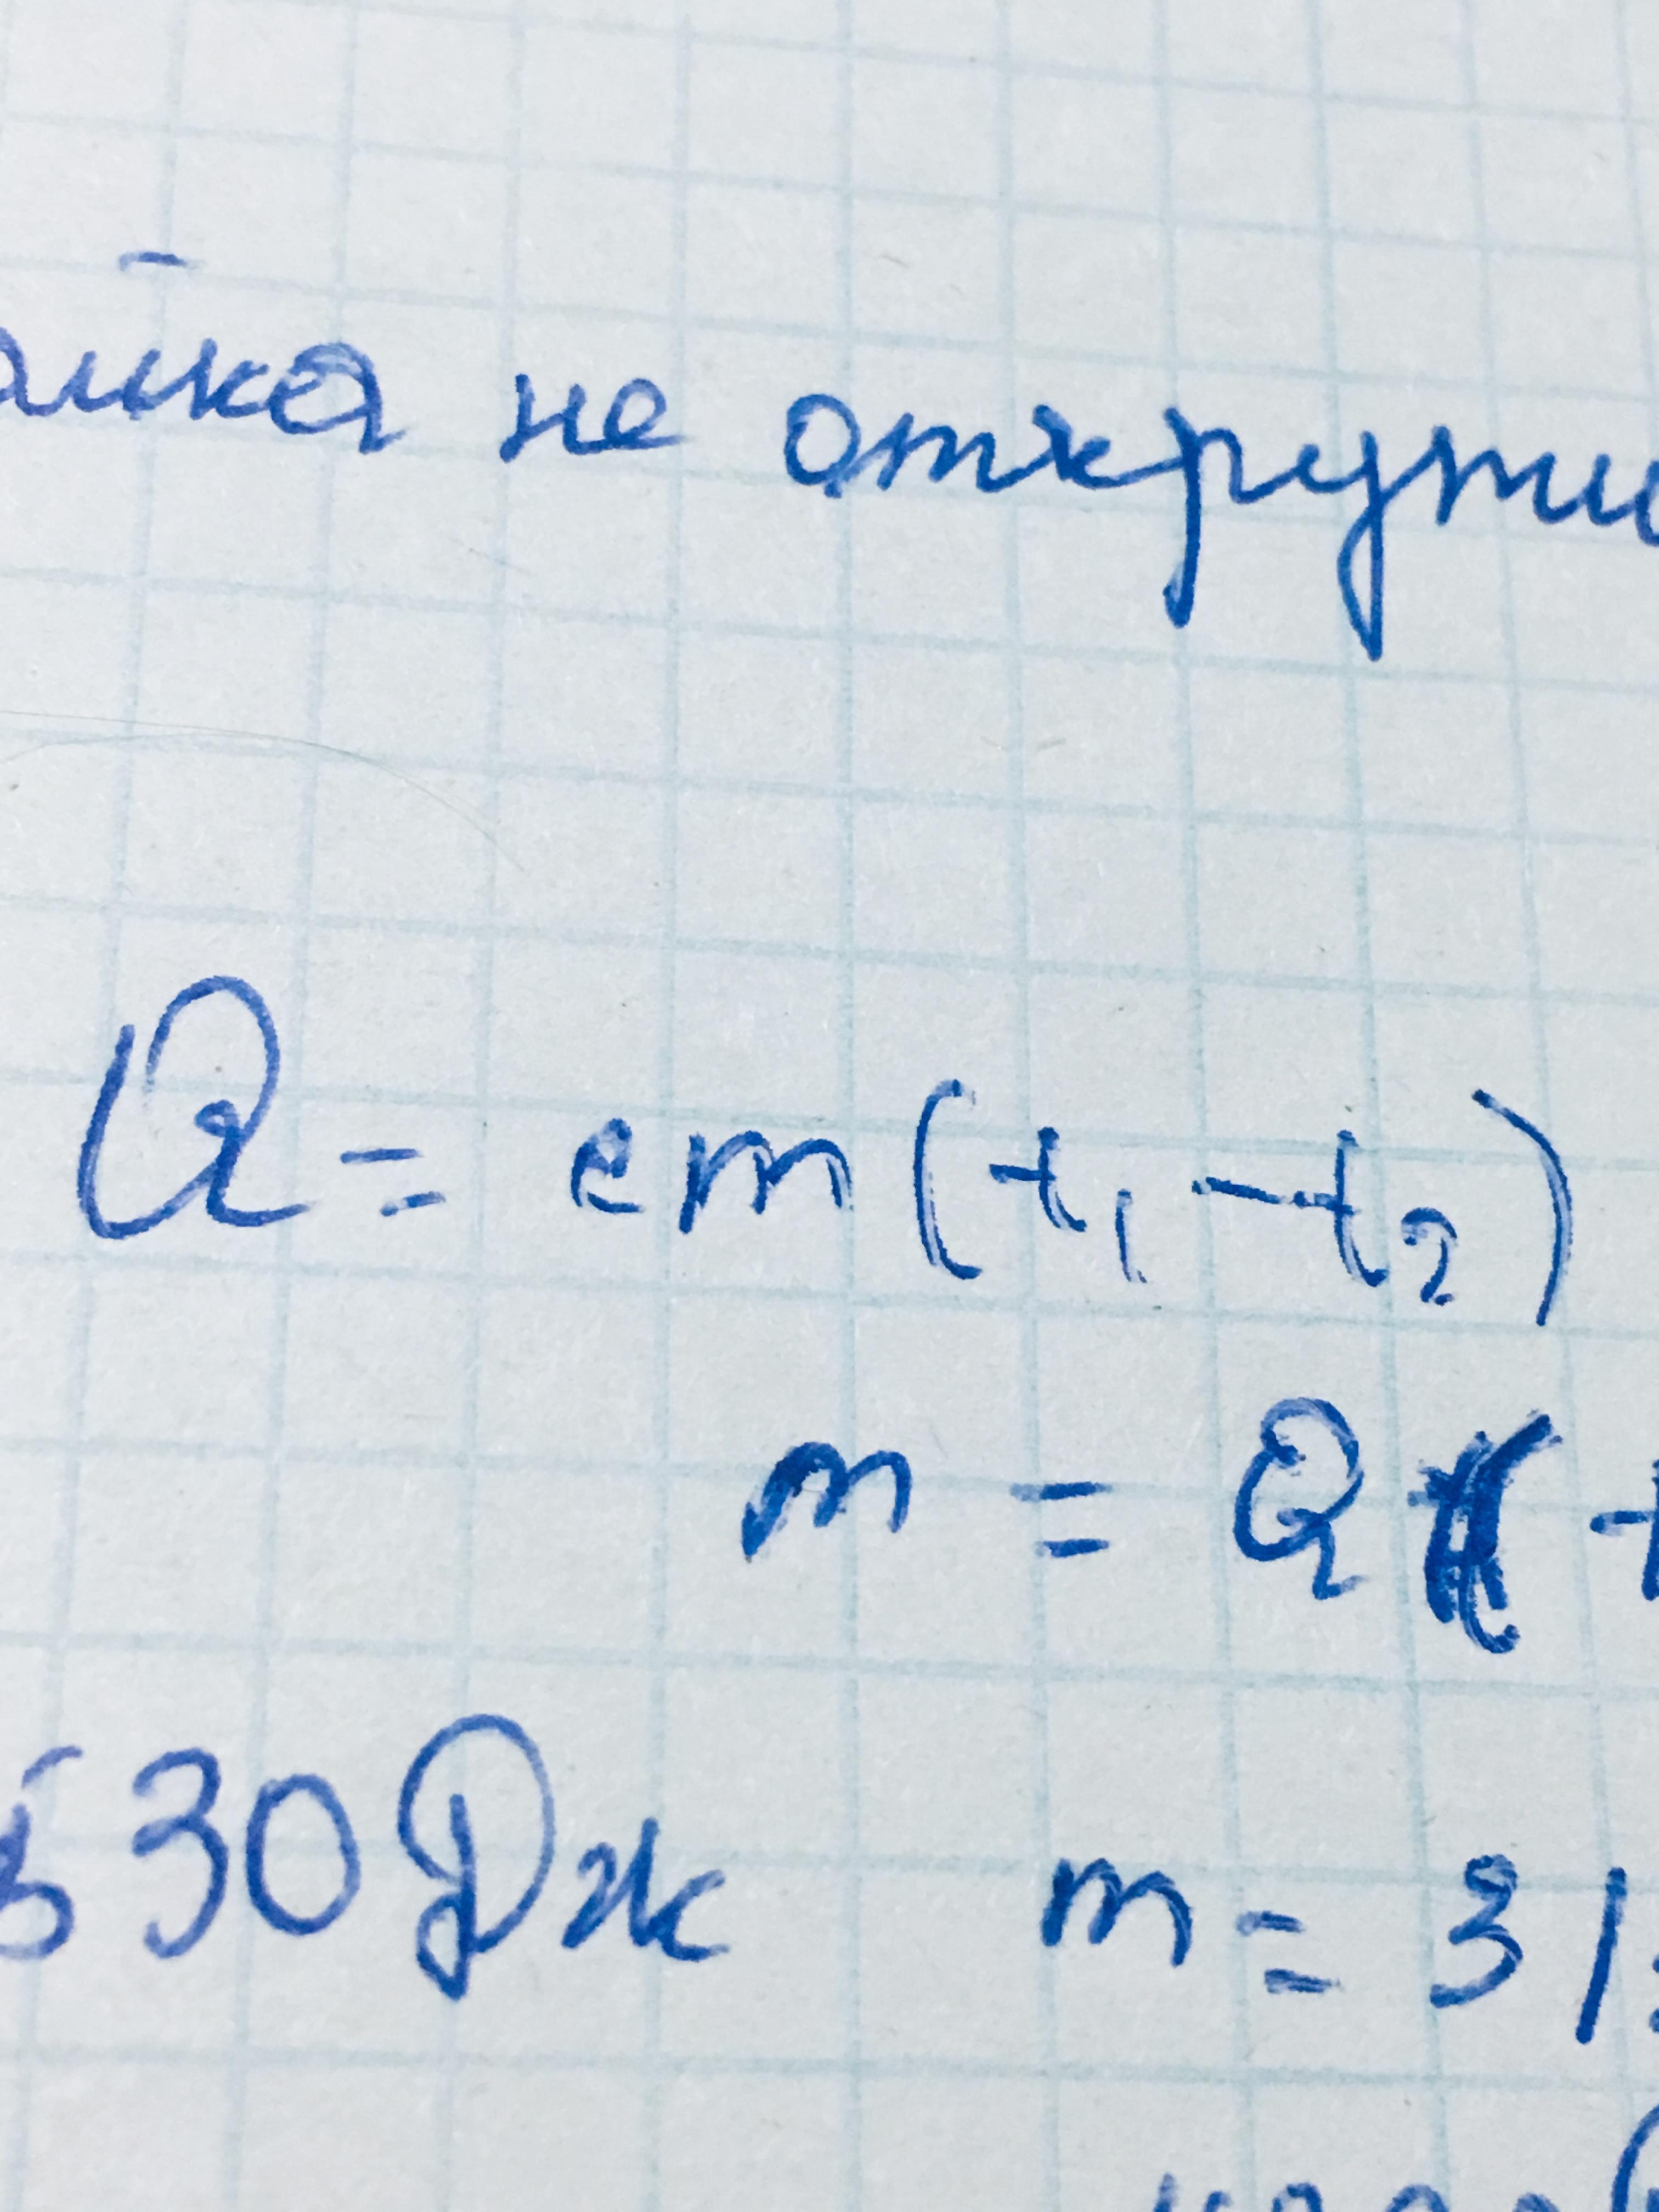 айка не открути
Q = cm(t₁ - t₂)
m = Q(
530 Дж m = 31